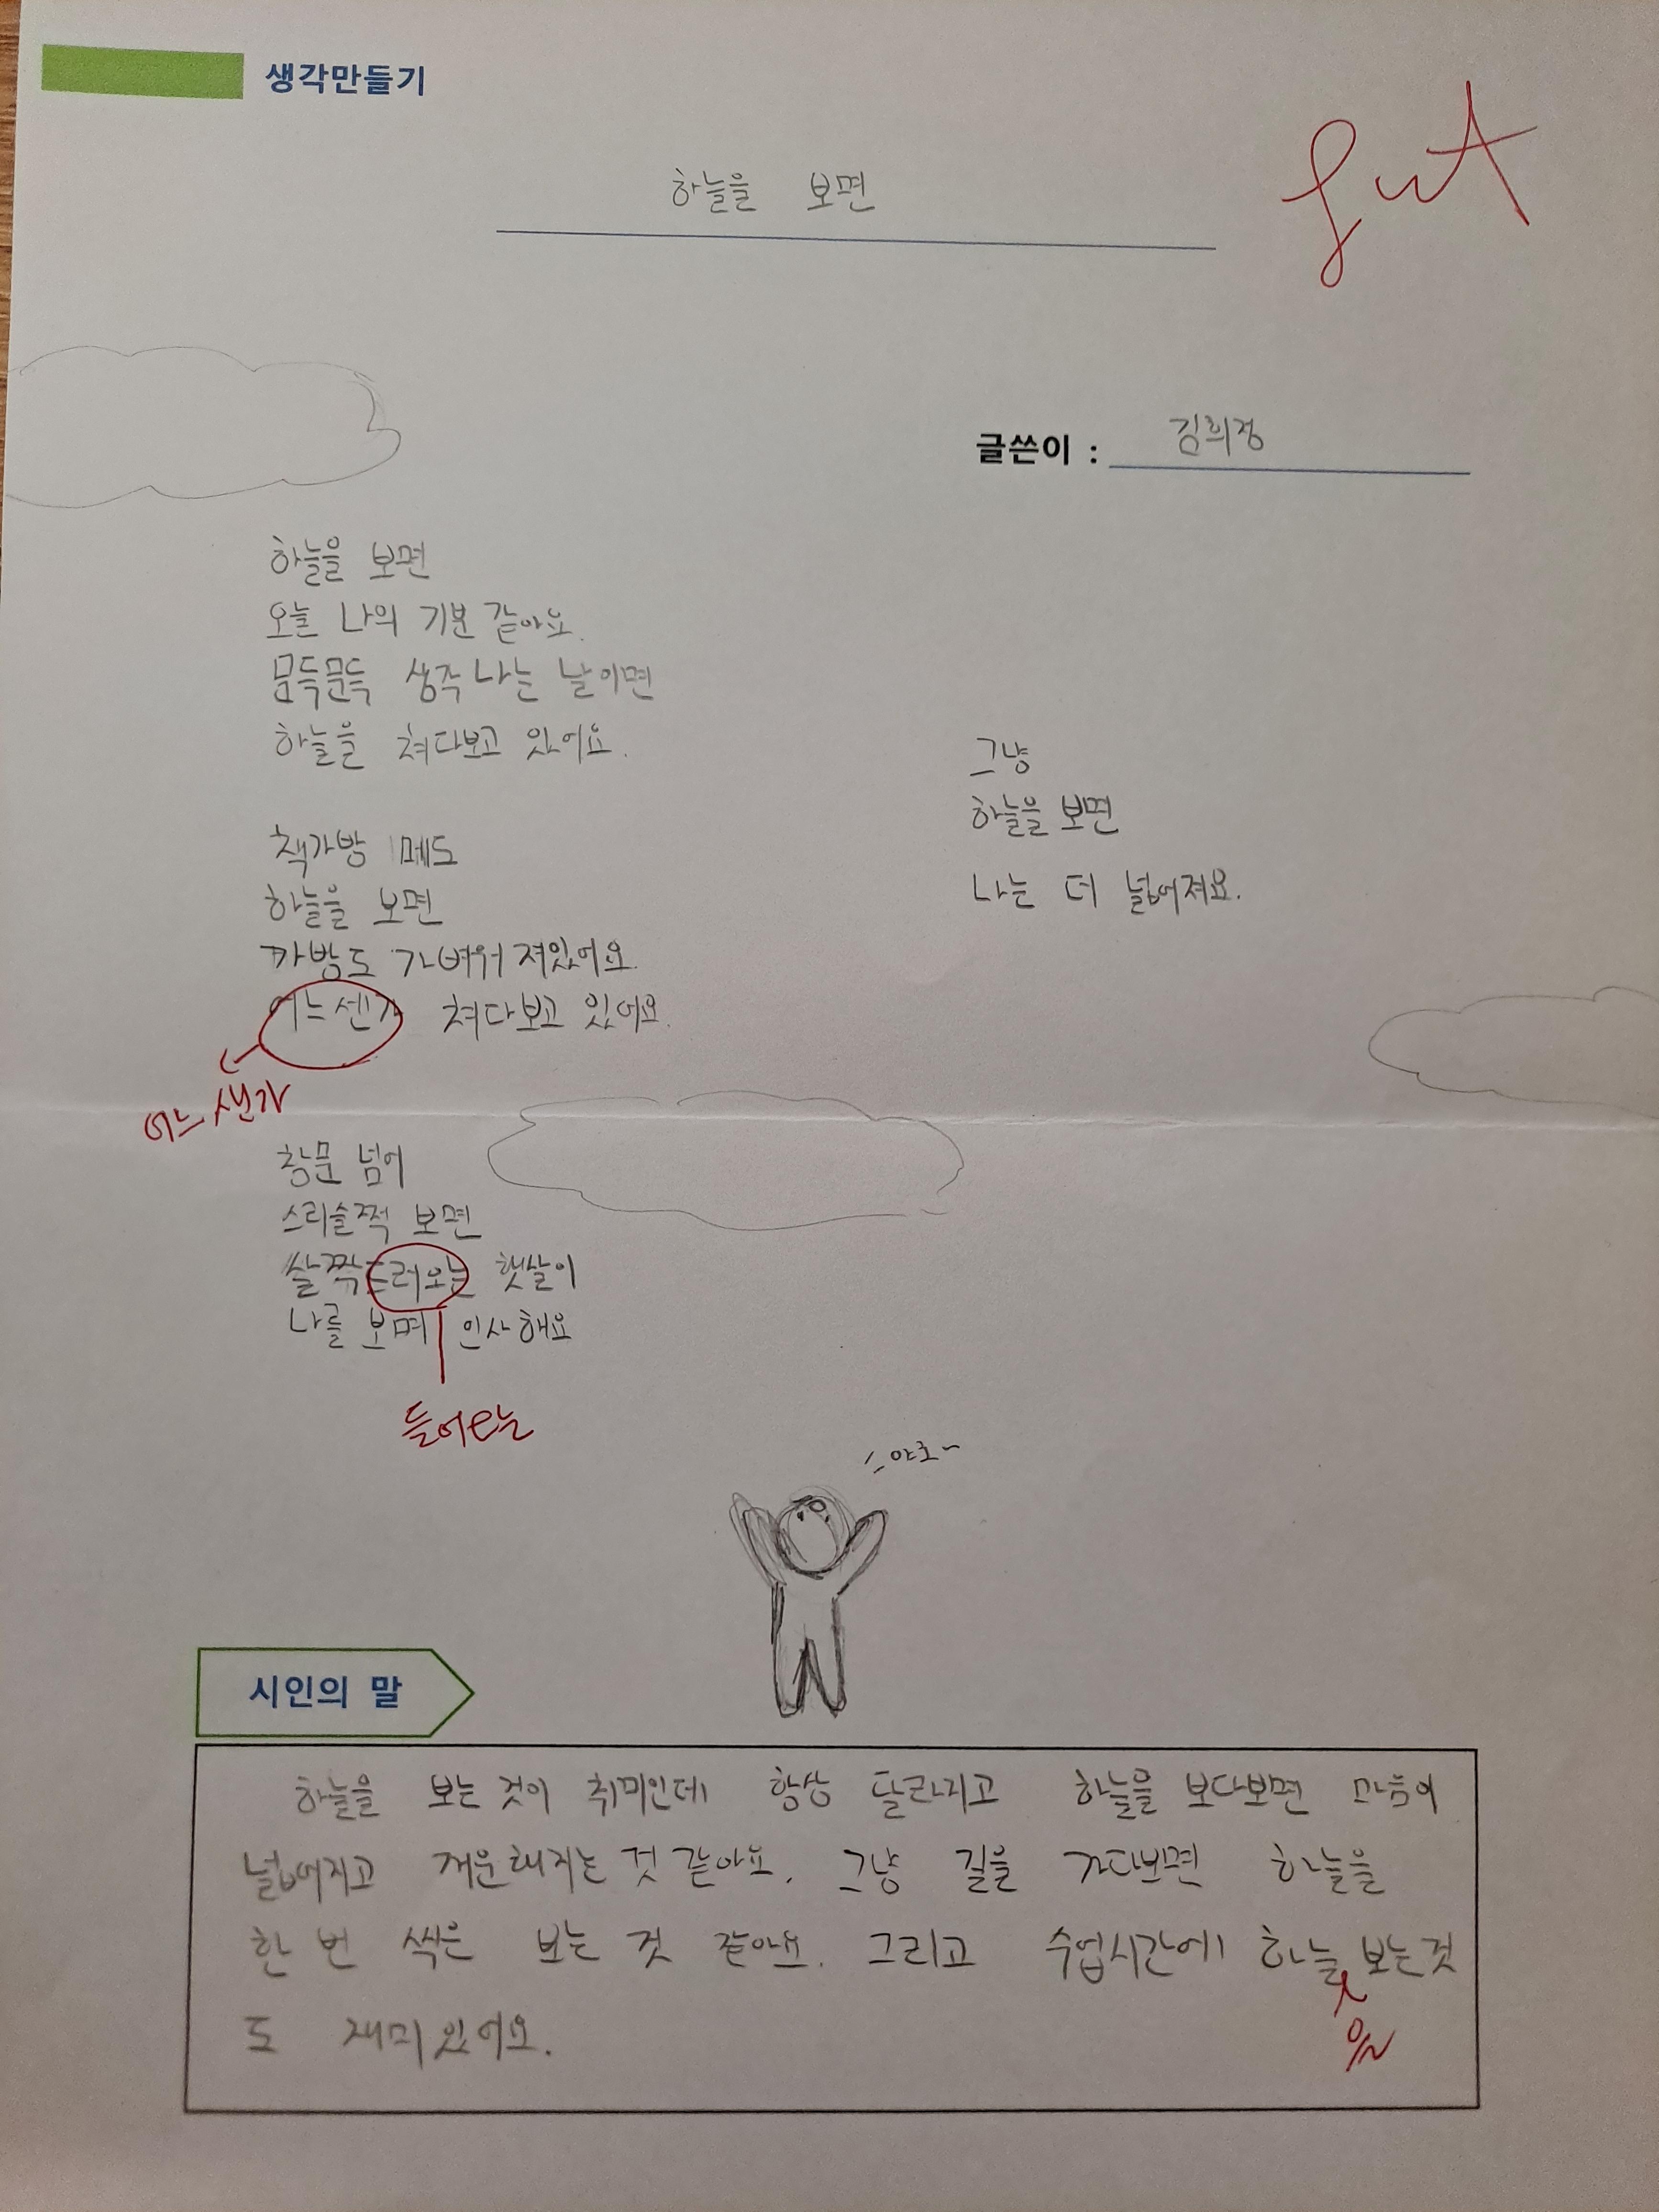 생각만들기
하늘을 보면
글쓴이 : 김희정
하늘을 보면
오늘 나의 기분 같아요.
문득문득 생각 나는 날이면
하늘을 쳐다보고 있어요.
책가방 메도
하늘을 보면
가방도 가벼워 져있어요.
어느센가 쳐다보고 있어요.
어느샌가
창문 넘어
스리슬쩍 보면
살짝드러오는 햇살이
나를 보며 인사해요
들어오는
그냥
하늘을 보면
나는 더 넓어져요.
시인의 말
하늘을 보는 것이 취미인데 항상 달라지고 하늘을 보다보면 마음이
넓어지고 개운해지는 것 같아요. 그냥 길을 가다보면 하늘을
한 번 씩은 보는 것 같아요. 그리고 수업시간에 하늘 보는것
을
도 재미있어요.